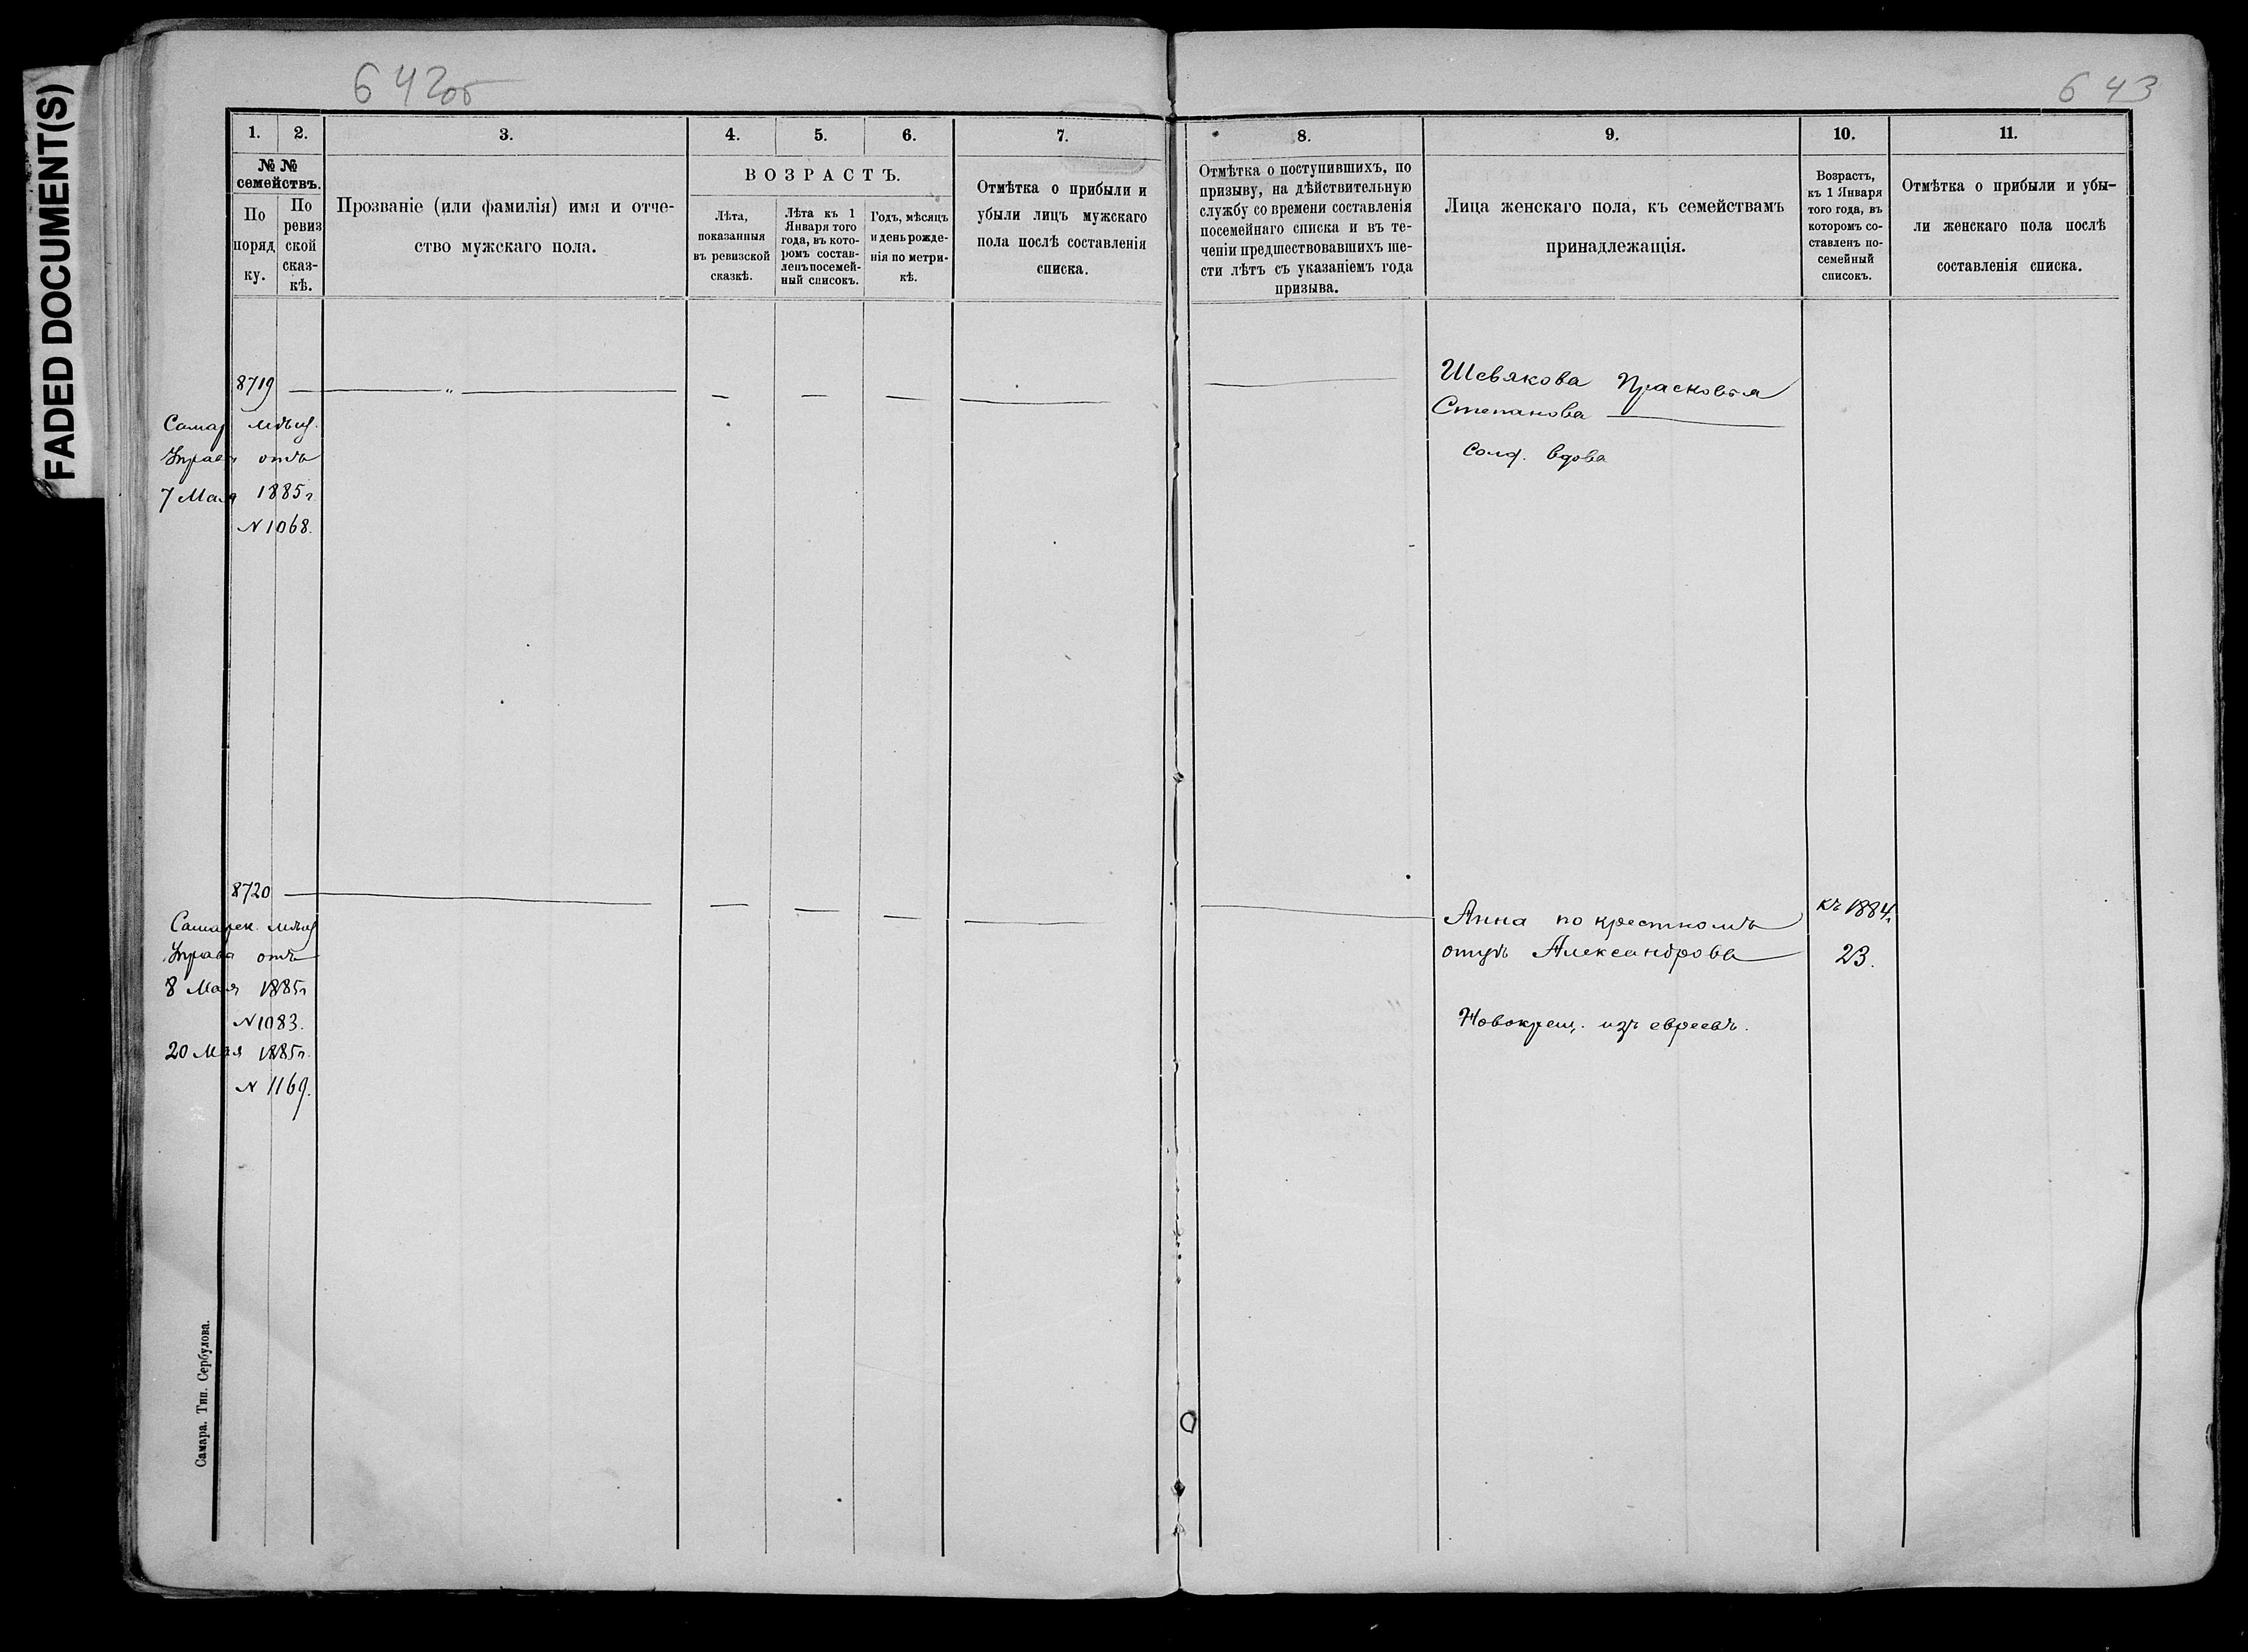 FADED DOCUMENT(S)
642об
643
1.
2.
3.
4.
5.
6.
7.
8.
9.
10.
11.
№ №
семействъ.
По
поряд
ку.
По
ревиз
ской
сказ-
кѣ.
Прозваніе (или фамилія) имя и отче-
ство мужскаго пола.
ВОЗРАСТЪ.
Лѣта,
показанныя
въ ревизской
сказкѣ.
Лѣта къ 1
Января того
года, въ кото-
ромъ состав-
ленъ посемей-
ный списокъ.
Годъ, мѣсяцъ
и день рожде-
нія по метри-
кѣ.
Отмѣтка о прибыли и
убыли лицъ мужскаго
пола послѣ составленія
списка.
Отмѣтка о поступившихъ, по
призыву, на дѣйствительную
службу со времени составленія
посемейнаго списка и въ те-
ченіи предшествовавшихъ ше-
сти лѣтъ съ указаніемъ года
призыва.
Лица женскаго пола, къ семействамъ
принадлежащія.
Возрастъ,
къ 1 Января
того года, въ
которомъ со-
ставленъ по-
семейный
списокъ.
Отмѣтка о прибыли и убы-
ли женскаго пола послѣ
составленія списка.
8719
Самар мѣщ.
Управа отъ
7 Мая 1885г
N 1068.
Шевякова Прасковья
Степанова
солд. вдова
8720
Самарск. мѣщ
Управа отъ
8 Мая 1885г
N 1083.
20 Мая 1885г.
N 1169.
Анна по крестномъ
отцѣ Александрова
Новокрещ. изъ евреевъ.
къ 1884г
23.
Самара. Тип. Сербулова.